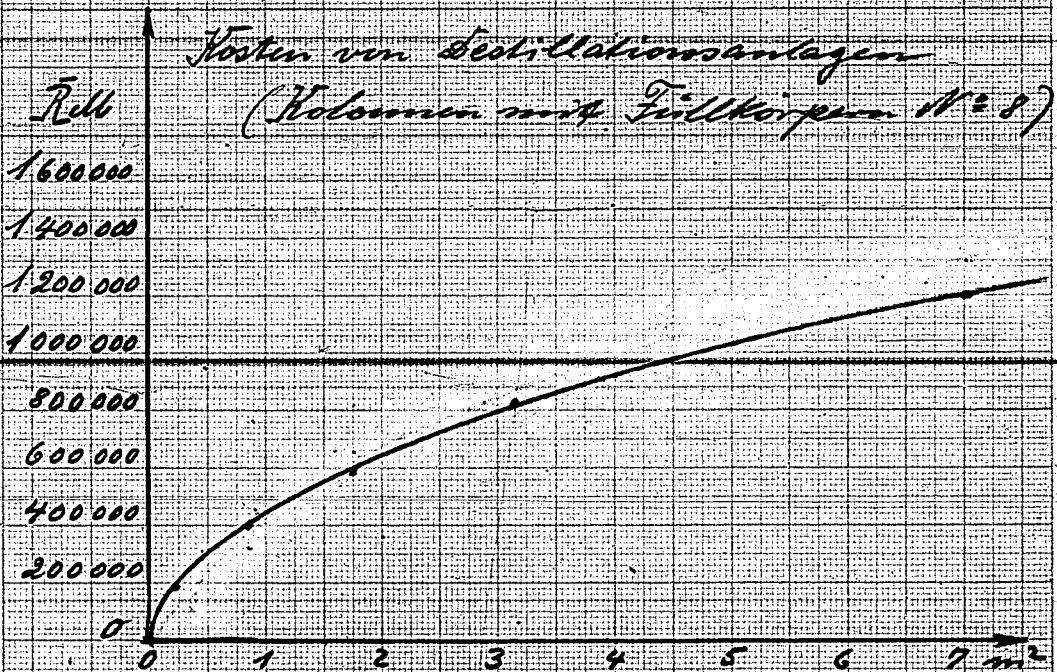 Kosten von Destillationsanlagen
RM
(Kolonnen mit Füllkörpern Nº 8)
1600000
1400000
1200000
1000000
800000
600000
400000
200000
0
0 1 2 3 4 5 6 7 m²